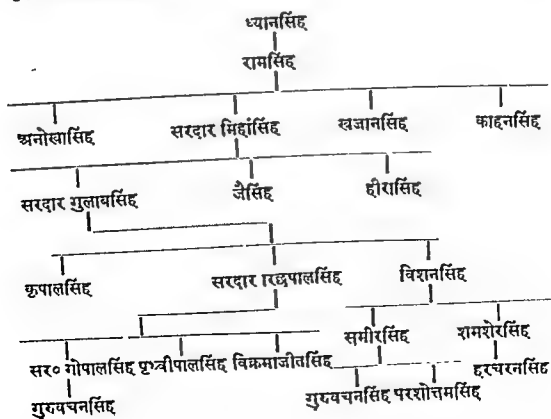 ध्यानसिंह
रामसिंह
अनोखासिंह सरदार मिहांसिंह खजानसिंह काहनसिंह
सरदार गुलाबसिंह जैसिंह हीरासिंह
कृपालसिंह सरदार रिछपालसिंह विशनसिंह
सर० गोपालसिंह पृथ्वीपालसिंह विक्रमाजीतसिंह समीरसिंह शमशेरसिंह
गुरुवचनसिंह गुरुवचनसिंह परशोत्तमसिंह हरचरनसिंह